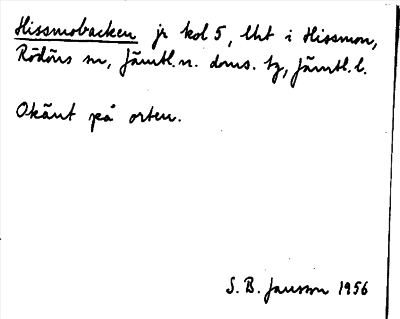 Hissmobacken jr kol 5, lht i Hissmon,
Rödöns sn, Jämtl. n. doms. tg, Jämtl. l.
Okänt på orten.
S. B. Jansson 1956